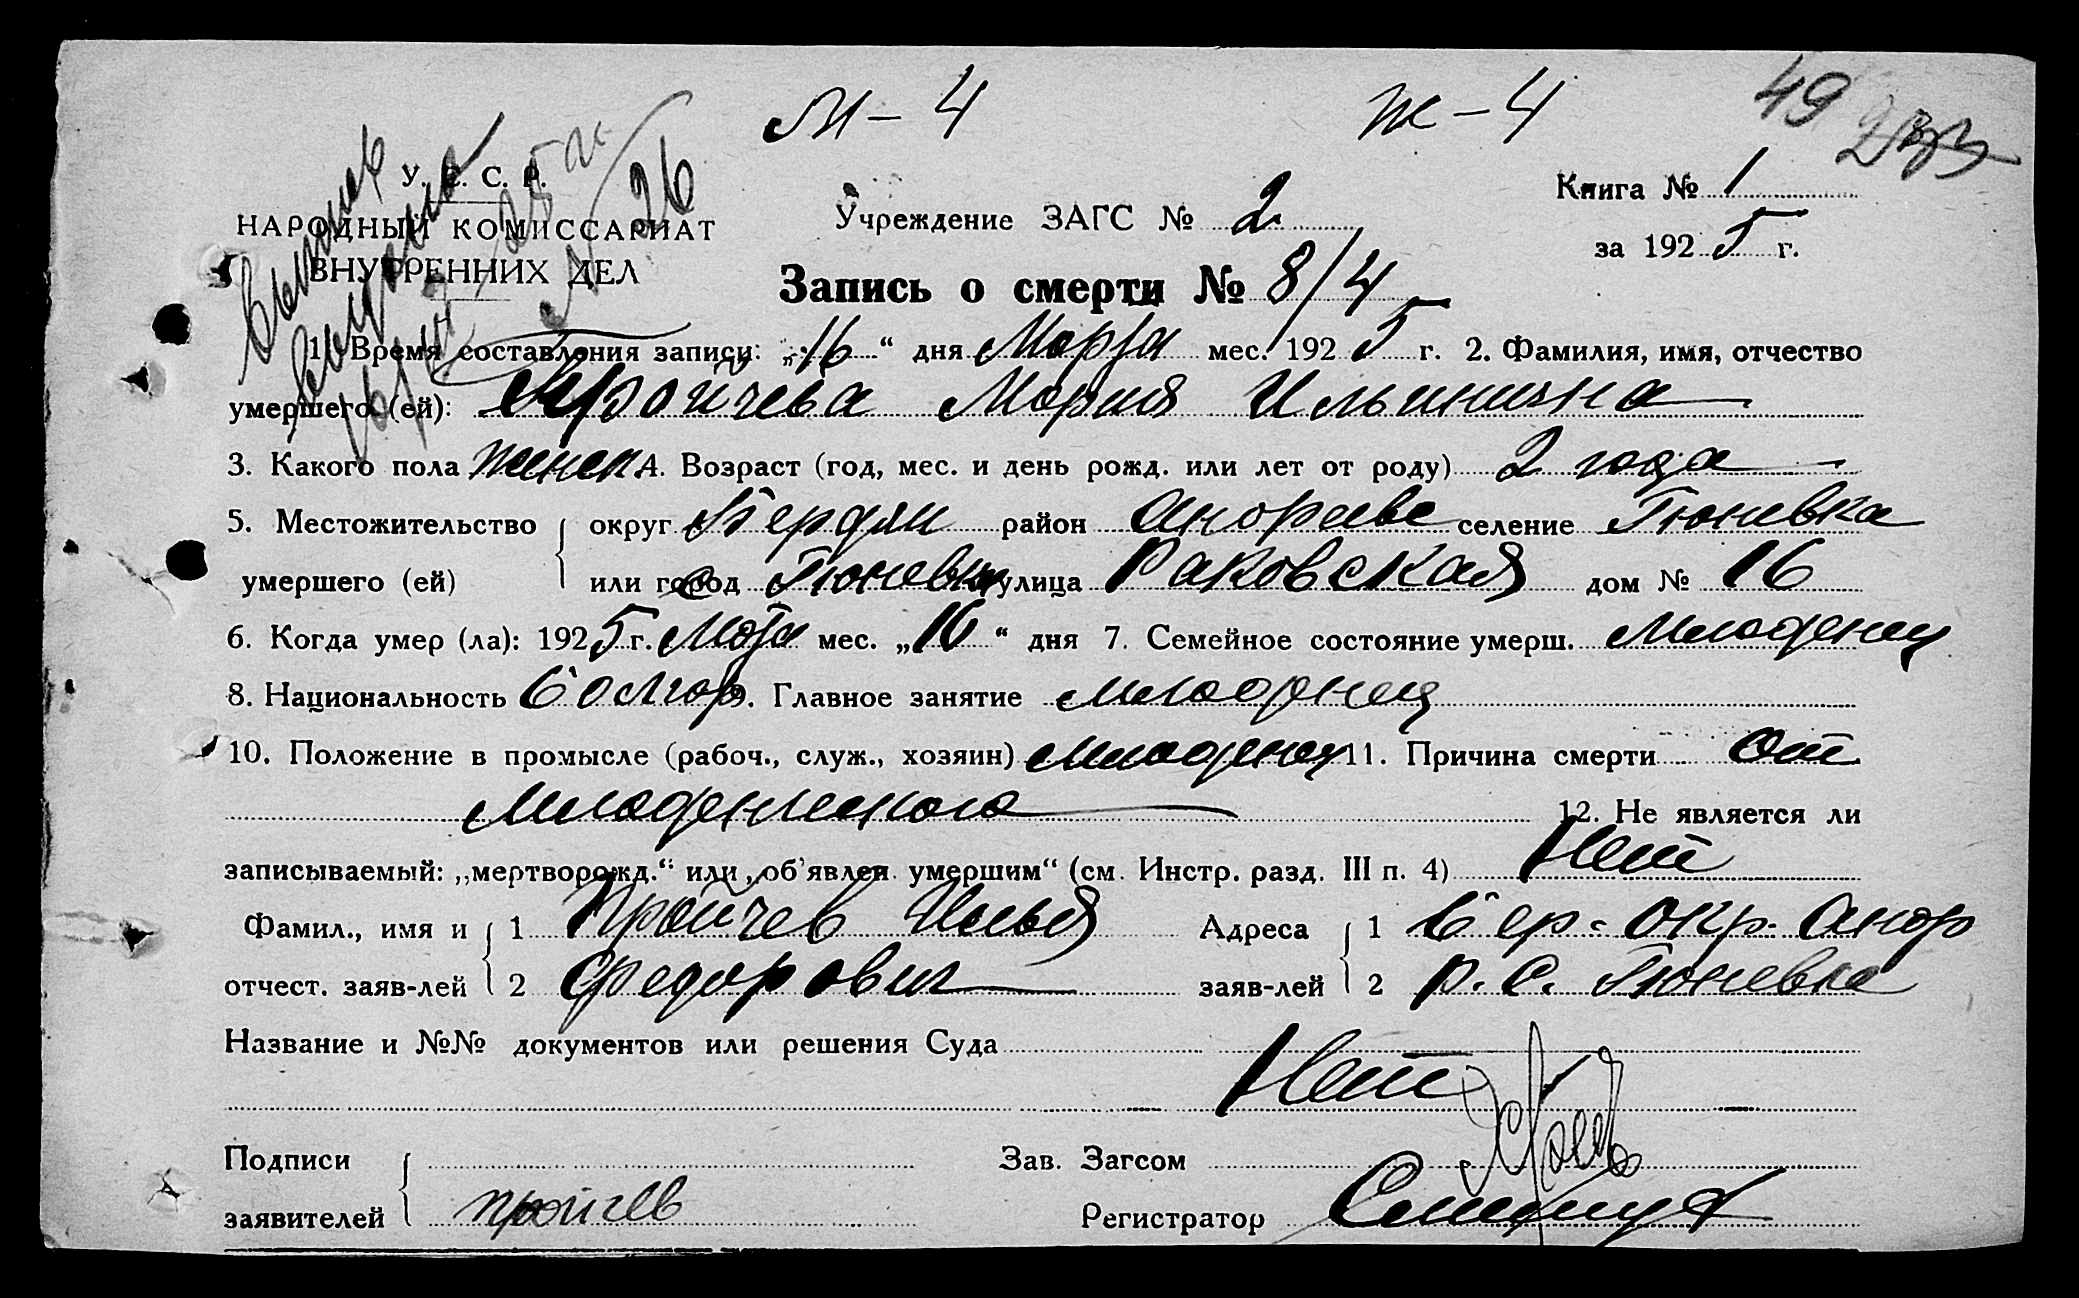 М – 4 Ж – 4 49
У. С. С. Р.
НАРОДНЫЙ КОМИССАРИАТ
ВНУТРЕННИХ ДЕЛ
Учреждение ЗАГС № 2
Книга № 1
за 1925 г.
Запись о смерти № 8/4
1. Время составления записи: „16“ дня Марта мес. 1925 г. 2. Фамилия, имя, отчество
умершего (ей): Пройчева Мария Ильинична
3. Какого пола женск 4. Возраст (год, мес. и день рожд. или лет от роду) 2 года
5. Местожительство округ Бердян район Андреев селение Гюневка
умершего (ей) или город с Гюневка улица Раковская дом № 16
6. Когда умер (ла): 1925 г. Марта мес. „16“ дня 7. Семейное состояние умерш. Младенец
8. Национальность Болгар 9. Главное занятие младенец
10. Положение в промысле (рабоч., служ., хозяин) младенец 11. Причина смерти От
Младенческого 12. Не является ли
записываемый: „мертворожд.“ или „об'явлен умершим“ (см. Инстр. разд. III п. 4) Нет
Фамил., имя и 1 Пройчев Илья Адреса 1 Бер. окр. Андр
отчест. заяв-лей 2 Федорович заяв-лей 2 р. с. Гюневка
Название и №№ документов или решения Суда
Нет
Подписи Зав. Загсом
заявителей Пройчев Регистратор